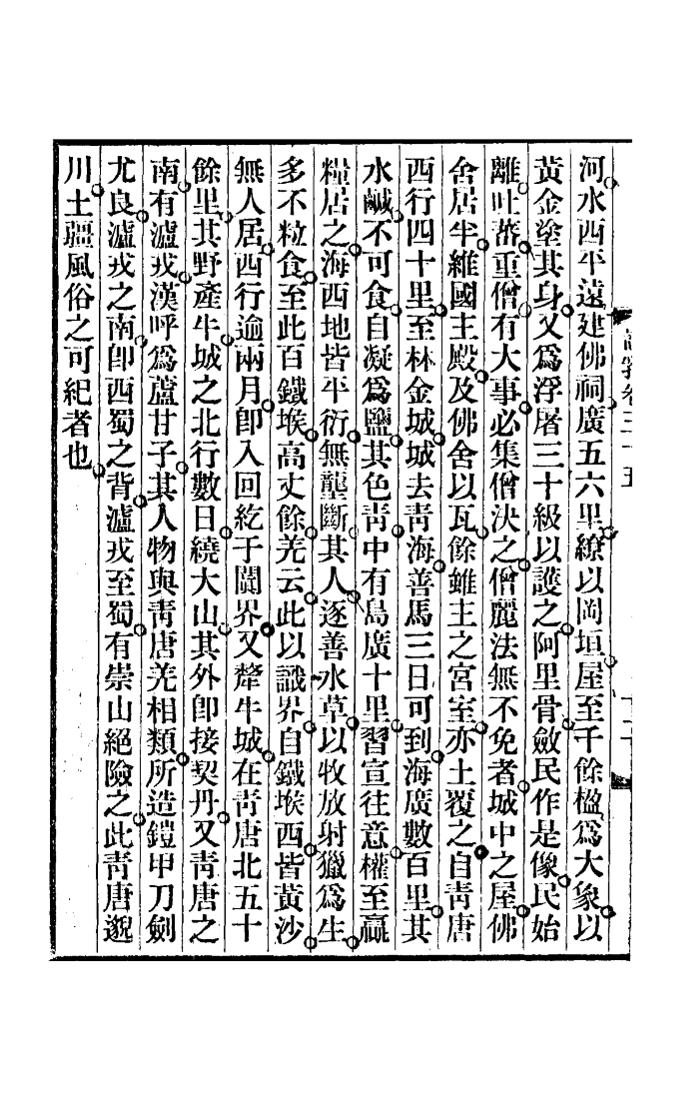 河水西平遠建佛祠廣五六里繚以岡垣屋至千餘楹爲大象以
黃金塗其身又爲浮屠三十級以護之阿里骨斂民作是像民始
離吐蕃重僧有大事必集僧決之僧麗法無不免者城中之屋佛
舍居半維國主殿及佛舍以瓦餘雖主之宮室亦土覆之自靑唐
西行四十里至林金城城去靑海善馬三日可到海廣數百里其
水鹹不可食自凝爲鹽其色靑中有島廣十里習宣往意權至贏
糧居之海西地皆平衍無壟斷其人逐善水草以牧放射獵爲生
多不粒食至此百鐵堠高丈餘羌云此以識界自鐵堠西皆黃沙
無人居西行逾兩月卽入回紇于闐界又犛牛城在靑唐北五十
餘里其野產牛城之北行數日繞大山其外卽接契丹又靑唐之
南有瀘戎漢呼爲蘆甘子其人物與靑唐羌相類所造鎧甲刀劍
尤良瀘戎之南卽西蜀之背瀘戎至蜀有崇山絕險之此靑唐邈
川土疆風俗之可紀者也